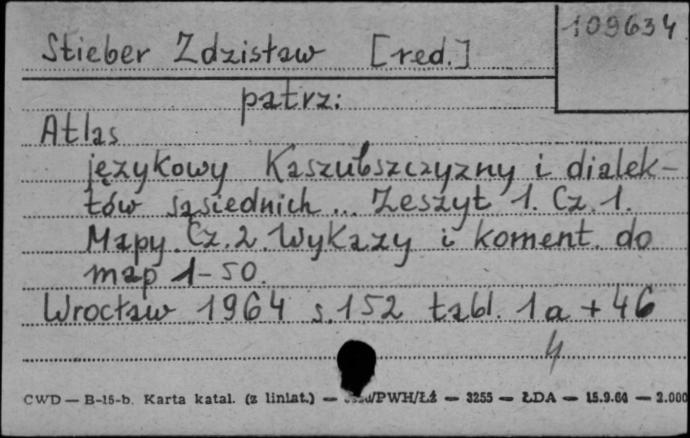 109634
Stieber Zdzisław [red.]
patrz:
Atlas
językowy Kaszubszczyzny i dialek-
tów sąsiednich... Zeszyt 1. Cz. 1.
Mapy. Cz. 2. Wykazy i koment. do
map 1-50.
Wrocław 1964 s. 152 tabl. 1a + 46
4
CWD — B-15-b. Karta katal. (z liniat.) — /PWH/Łż — 3255 — ŁDA — 15.9.64 — 2.000